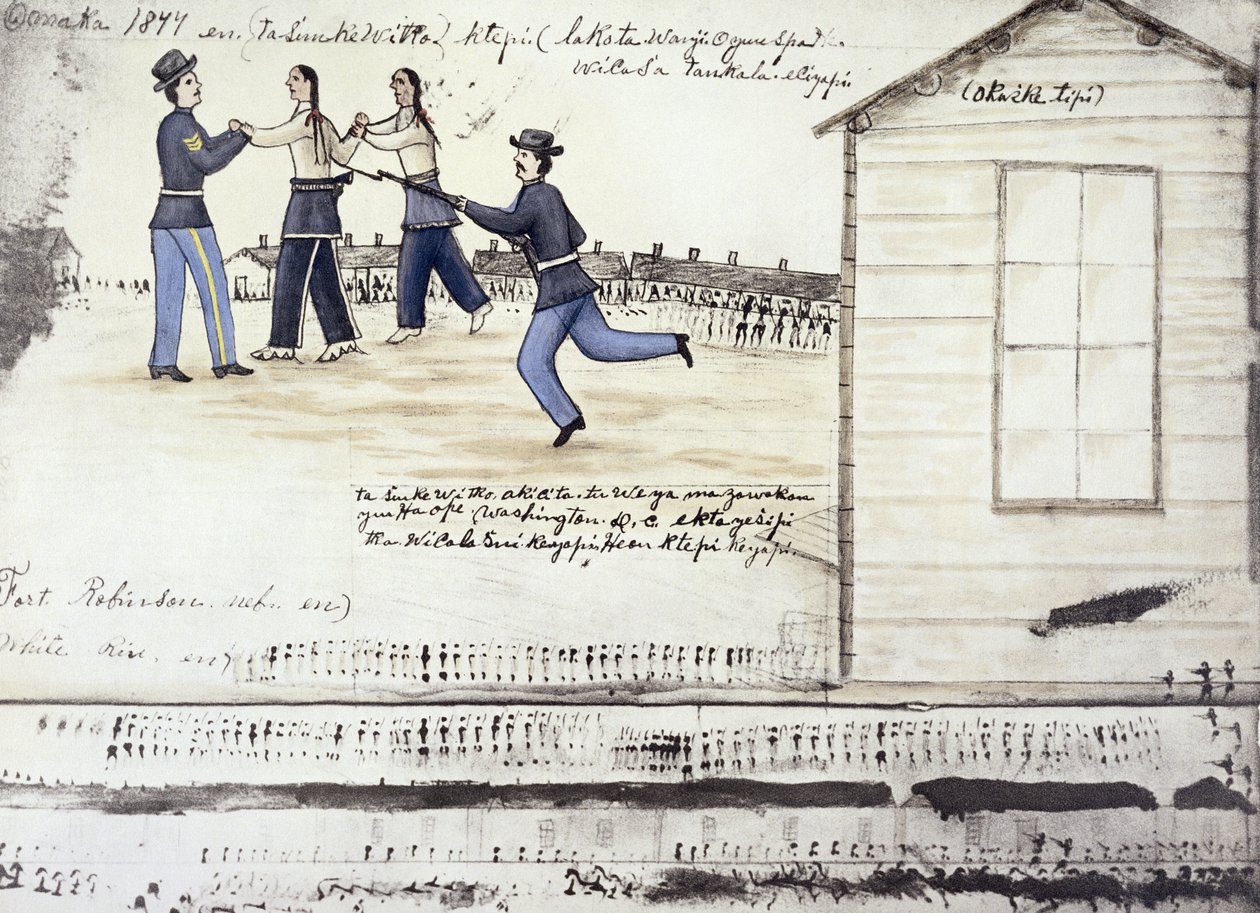 Omaka 1844 en. (ta śunke Witko) ktepi. (lakota. Wanji. Oguu Spa
Wicaśa tankala. eciyapi
(Okaśke tipi)
ta śunke Witko. akicita. tuweya mazawakan
yuu Ha ope. Washington. D, C. ekta yeśipi
tka. Wicala śni. keyapi. Heon ktepi keyapi.
Fort. Robinson. nebr. en)
White Riv. en)